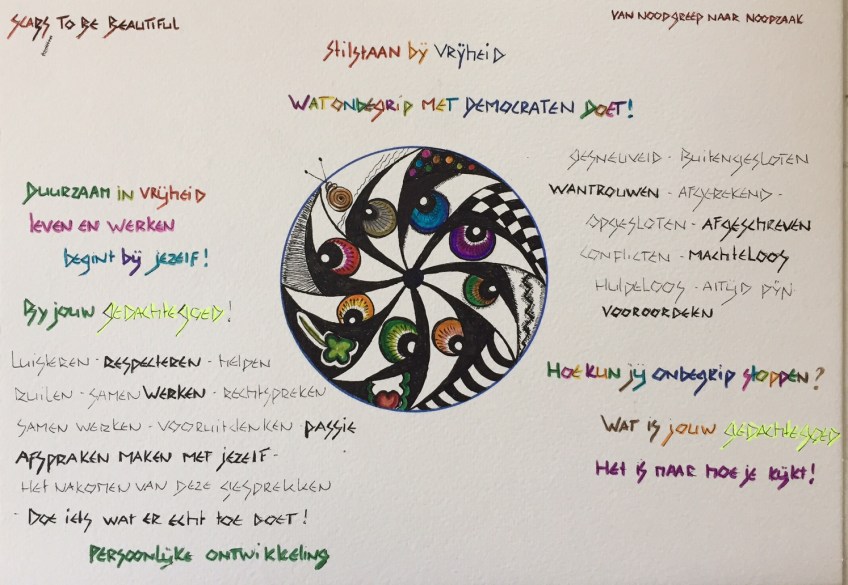 SCARS TO BE BEAUTIFUL
VAN NOODGREEP NAAR NOODZAAK
Stilstaan bij VRIJHEID
WAT ONBEGRIP MET DEMOCRATEN DOET!
DUURZAAM IN VRIJHEID
leven en werken
begint bij jezelf!
By jouw GEDACHTEGOED!
LUISTEREN - RESPECTEREN - HELPEN
RUILEN - SAMEN WERKEN - RECHTSPREKEN
SAMEN WERKEN - VOORUITDENKEN - PASSIE
AFSPRAKEN MAKEN MET JEZELF -
HET NAKOMEN VAN DEZE GESPREKKEN
- DOE IETS WAT ER ECHT TOE DOET!
PERSOONLIJKE ONTWIKKELING
GESNEUVELD - BUITENGESLOTEN
WANTROUWEN - AFGEREKEND -
OPGESLOTEN - AFGESCHREVEN
CONFLICTEN - MACHTELOOS
HULPELOOS - ALTIJD PIJN -
VOOROORDELEN
HOE KUN JIJ ONBEGRIP STOPPEN?
WAT IS JOUW GEDACHTEGOED
HET IS MAAR HOE JE KIJKT!